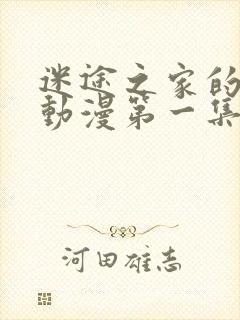 迷途之家的
動漫第一集
河田雄志